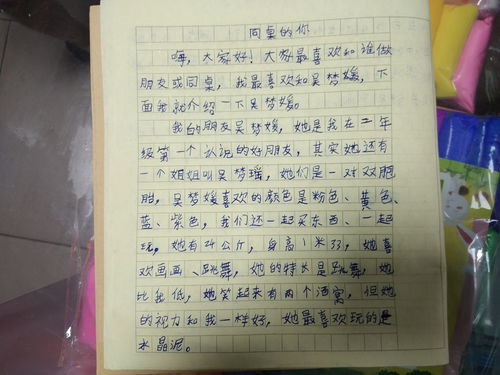 同桌的你
嗨,大家好!大家最喜欢和谁做
朋友或同桌,我最喜欢和吴梦媛,下
面我就介绍一下吴梦媛。
我的朋友吴梦媛,她是我在二年
级第一个认识的好朋友,其实她还有
一个姐姐叫吴梦瑶,她们是一对双胞
胎,吴梦媛喜欢的颜色是粉色、黄色、
蓝、紫色,我们还一起买东西、一起
玩。她有24公斤,身高1米33,她喜
欢画画、跳舞,她的特长是跳舞,她
比我低,她笑起来有两个酒窝,但她
的视力和我一样好,她最喜欢玩的是
水晶泥。